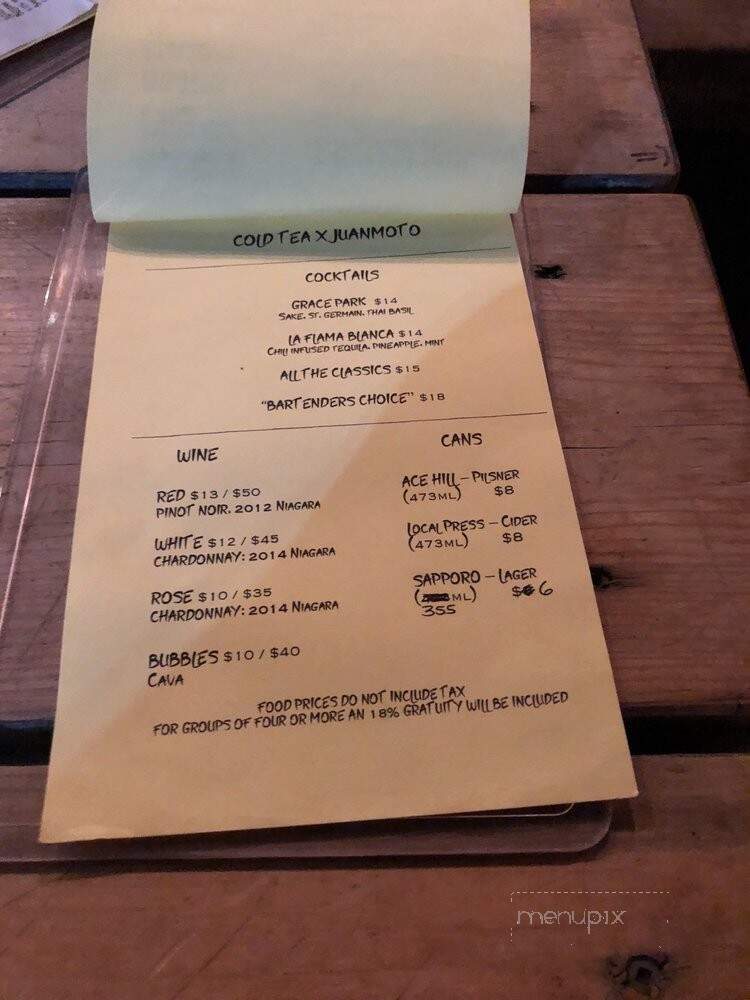 COLD TEA X JUANMOTO
COCKTAILS
GRACE PARK $14
SAKE, ST. GERMAIN, THAI BASIL
LA FLAMA BLANCA $14
CHILI INFUSED TEQUILA, PINEAPPLE, MINT
ALL THE CLASSICS $15
"BARTENDERS CHOICE" $18
WINE
RED $13 / $50
PINOT NOIR. 2012 NIAGARA
WHITE $12 / $45
CHARDONNAY: 2014 NIAGARA
ROSE $10 / $35
CHARDONNAY: 2014 NIAGARA
BUBBLES $10 / $40
CAVA
CANS
ACE HILL – PILSNER
(473ML) $8
LOCAL PRESS – CIDER
(473ML) $8
SAPPORO – LAGER
( ML) $ 6
355
FOOD PRICES DO NOT INCLUDE TAX
FOR GROUPS OF FOUR OR MORE AN 18% GRATUITY WILL BE INCLUDED
menupix